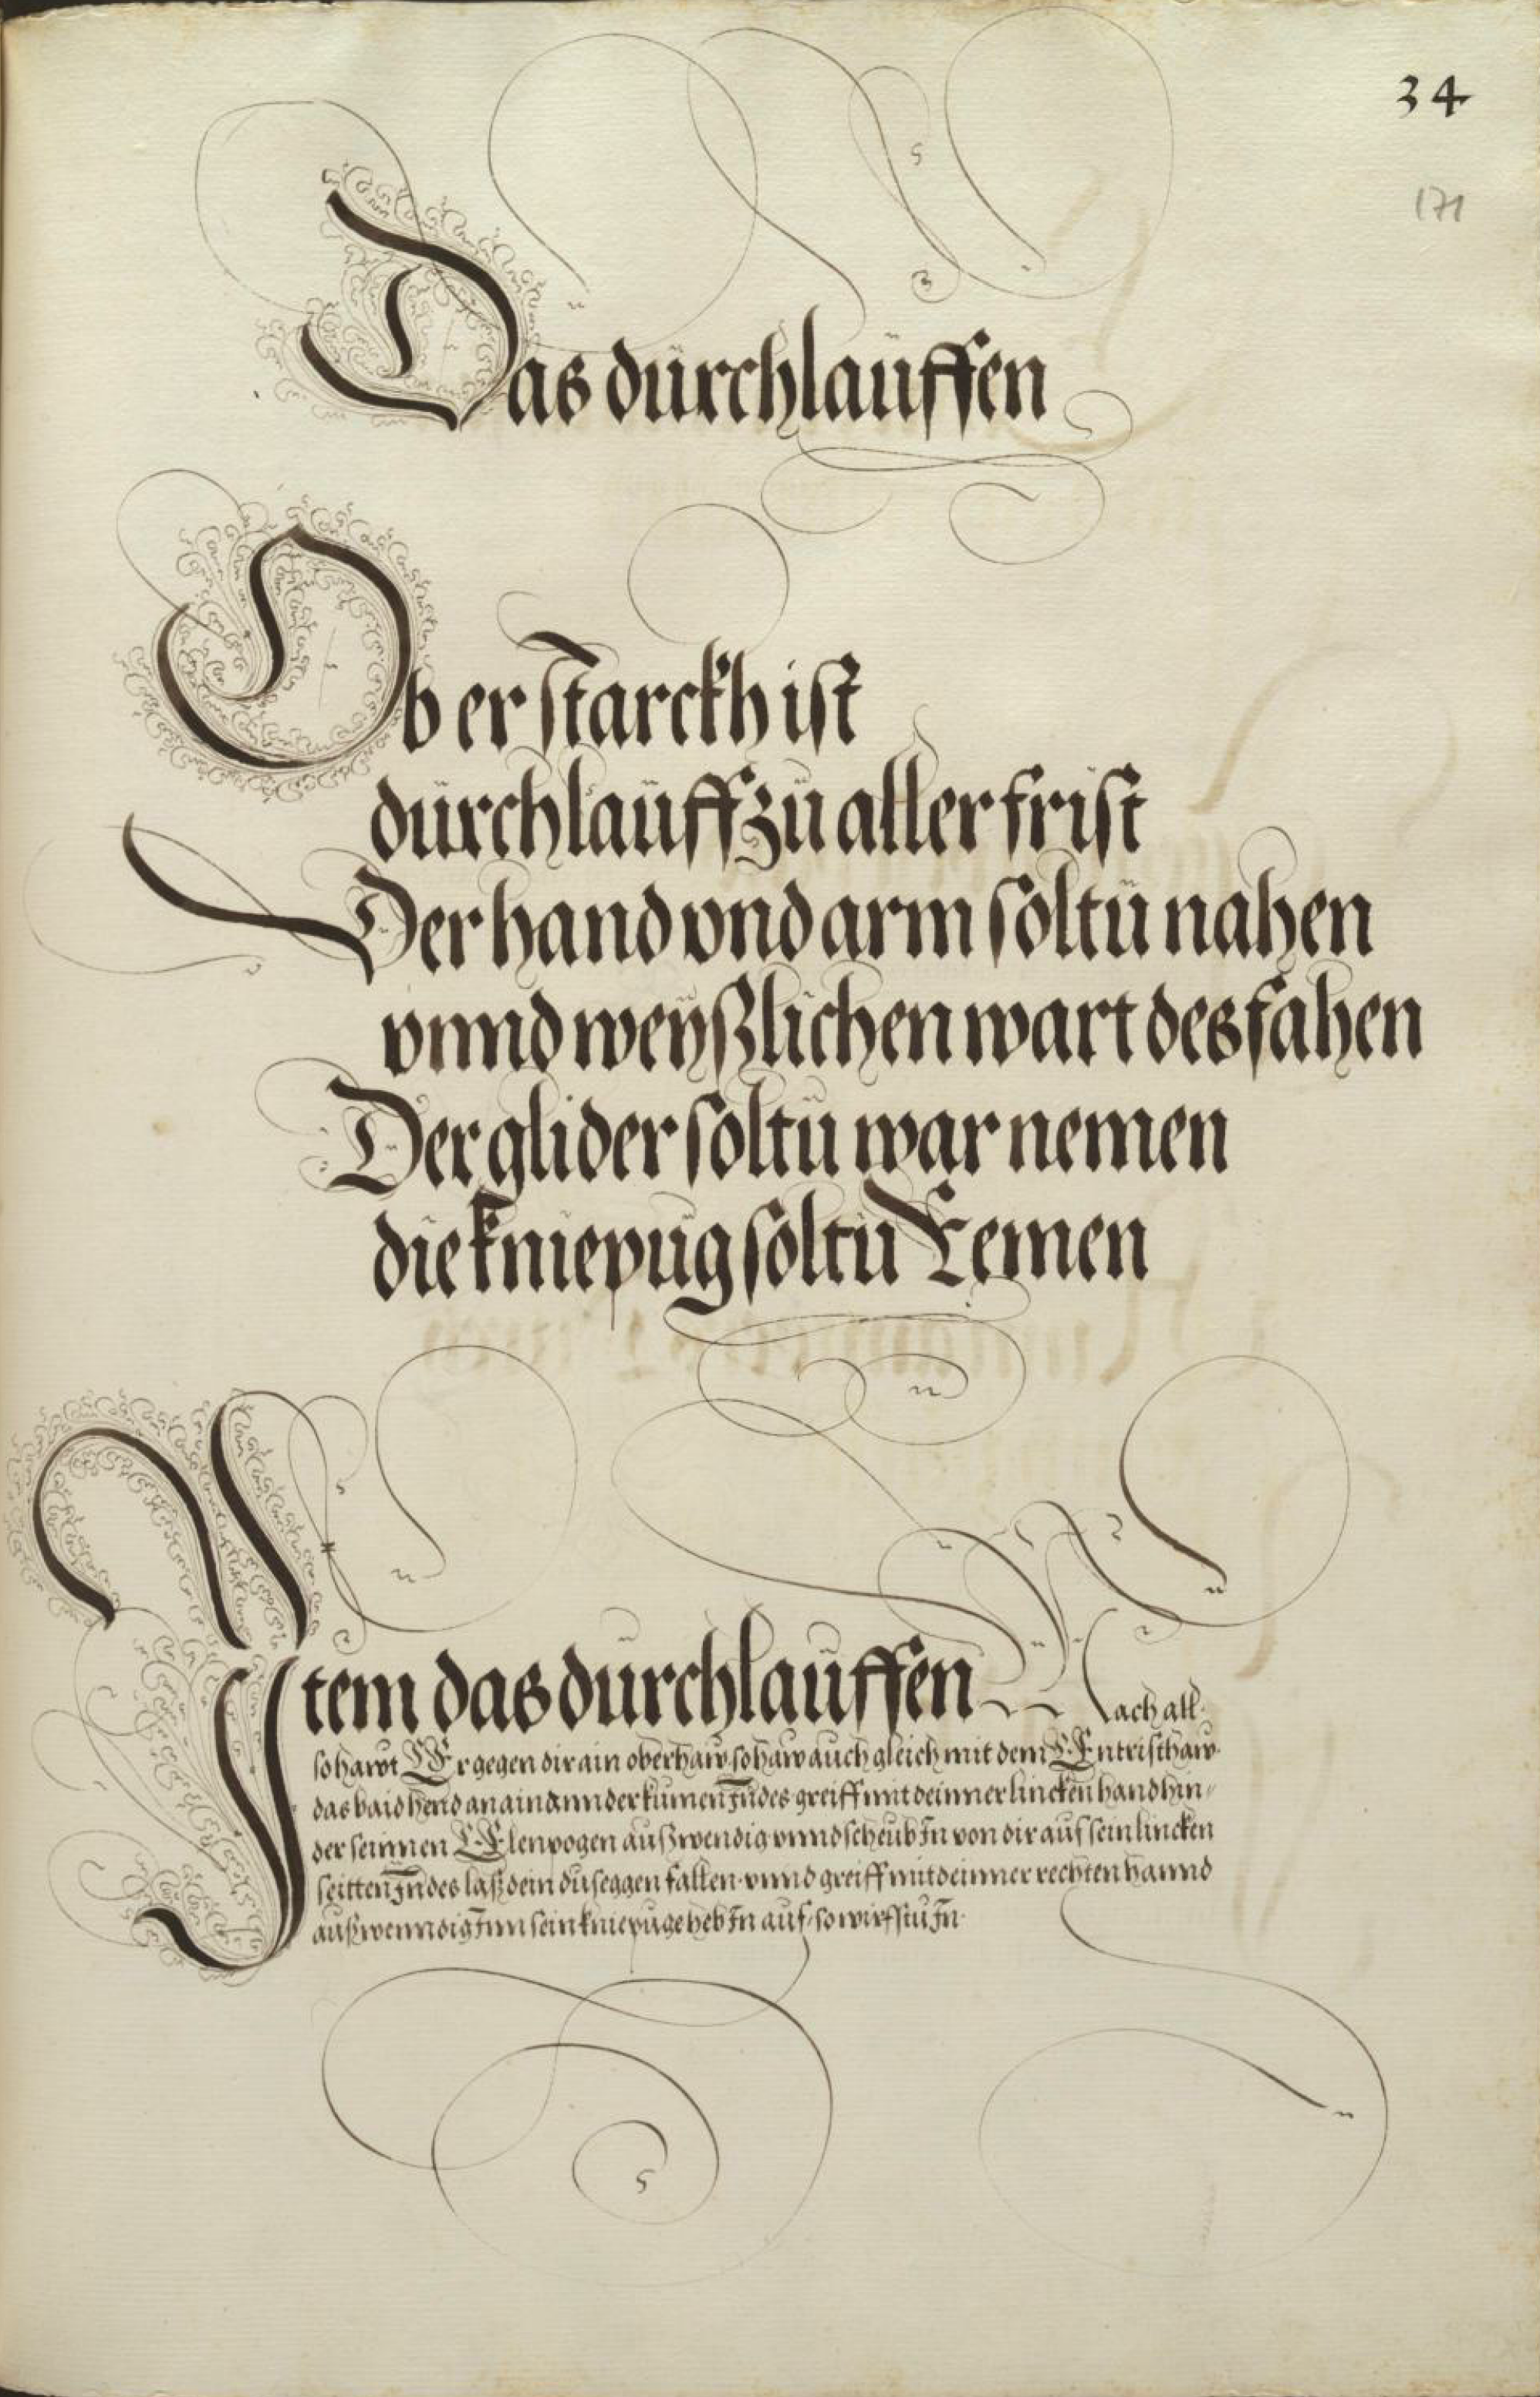 34
171
Das durchlauffen
Ob er starckh ist
durchlauff zu aller frist
Der hand vnd arm soltu nahen
vnnd weÿßlichen wart des fahen
Der glider soltu war nemen
die kniepug soltu Lemen
Item das durchlauffen Nach all
so hawt Er gegen dir ain oberhaw so haw auch gleich mit dem Entristhaw
das baid hend an ainannder kumen Indes greiff mit deinner lincken hand hin-
der seinnen Elenpogen außwendig vnnd scheub In von dir auf sein lincken
seitten Indes laß dein duseggen fallen vnnd greiff mit deinner rechten hannd
außwenndig Inn sein kniepuge heb In auf so wirfstu In